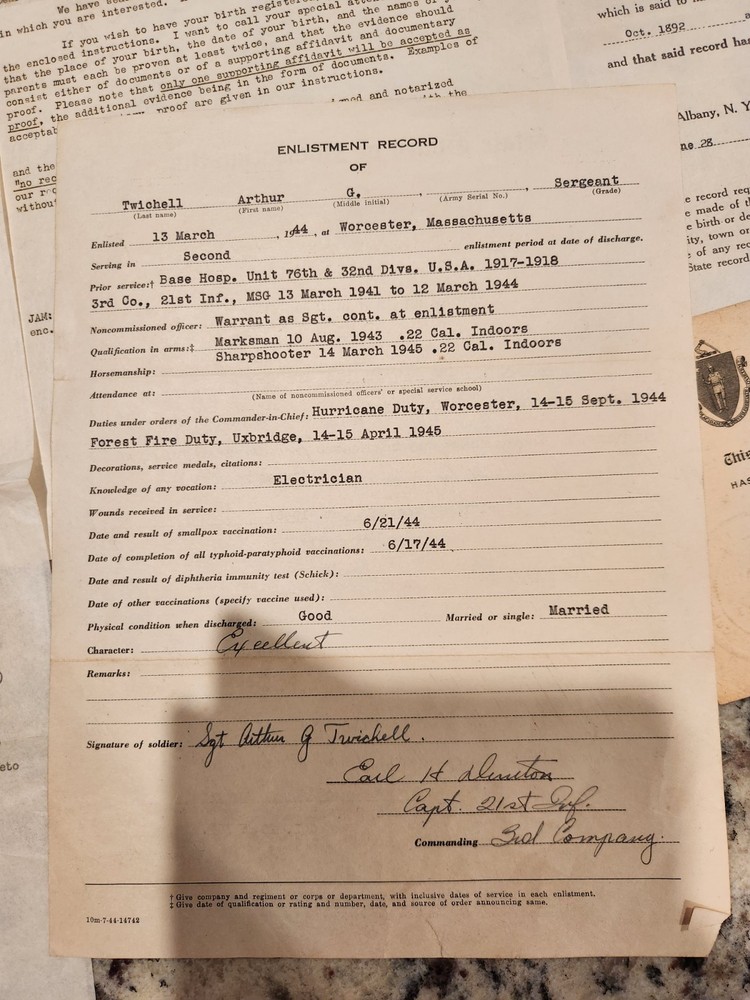 We have
in which you are interested.
If you wish to have your birth registered
the enclosed instructions. I want to call your special
that the place of your birth, the date of your birth, and the names of
parents must each be proven at least twice, and that the evidence should
consist either of documents or of a supporting affidavit and documentary
proof. Please note that only one supporting affidavit will be accepted as
proof, the additional evidence being in the form of documents. Examples of
proof are given in our instructions.
and notarized
and the
"no rec
our
without
JAM:
enc.
eto
which is said to
Oct. 1892
and that said record has
Albany, N. Y
28
record
made of
birth or de
ity, town or
of any rec
State record
This
HAS
ENLISTMENT RECORD
OF
Twichell Arthur G. , , Sergeant
(Last name) (First name) (Middle initial) (Army Serial No.) (Grade)
Enlisted 13 March , 1944 , at Worcester, Massachusetts
Serving in Second enlistment period at date of discharge.
Prior service:† Base Hosp. Unit 76th & 32nd Divs. U.S.A. 1917-1918
3rd Co., 21st Inf., MSG 13 March 1941 to 12 March 1944
Noncommissioned officer: Warrant as Sgt. cont. at enlistment
Qualification in arms:‡ Marksman 10 Aug. 1943 .22 Cal. Indoors
Sharpshooter 14 March 1945 .22 Cal. Indoors
Horsemanship:
Attendance at:
(Name of noncommissioned officers' or special service school)
Duties under orders of the Commander-in-Chief: Hurricane Duty, Worcester, 14-15 Sept. 1944
Forest Fire Duty, Uxbridge, 14-15 April 1945
Decorations, service medals, citations:
Knowledge of any vocation: Electrician
Wounds received in service:
Date and result of smallpox vaccination: 6/21/44
Date of completion of all typhoid-paratyphoid vaccinations: 6/17/44
Date and result of diphtheria immunity test (Schick):
Date of other vaccinations (specify vaccine used):
Physical condition when discharged: Good Married or single: Married
Character: Excellent
Remarks:
Signature of soldier: Sgt Arthur G Twichell.
Earl H
Capt. 21st Inf.
Commanding 3rd Company.
† Give company and regiment or corps or department, with inclusive dates of service in each enlistment.
‡ Give date of qualification or rating and number, date, and source of order announcing same.
10m-7-44-14742